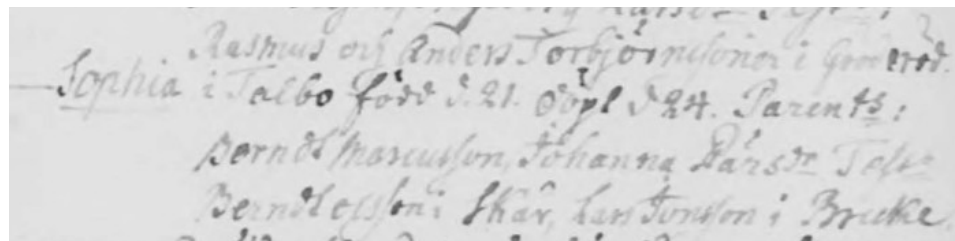 Rasmus och Anders Torbjörnssöner i Grönröd.
Sophia i Talbo född d. 21. döpt d 24. Parents:
Berndt Marcusson, Johanna Larsdr Test:
Berndt Olsson i Skår, Lars Jonsson i Brecke.